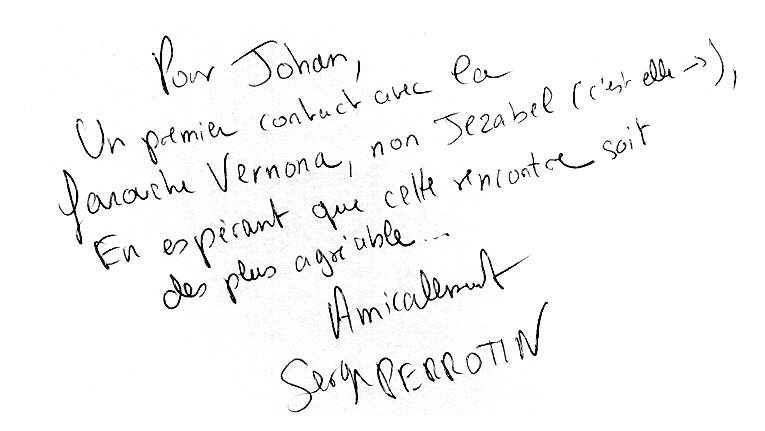 Pour Johan,
Un premier contact avec la
farouche Vernona, non Jezabel (c'est elle →),
En espérant que cette rencontre soit
des plus agréable...
Amicalement
Serge PERROTIN